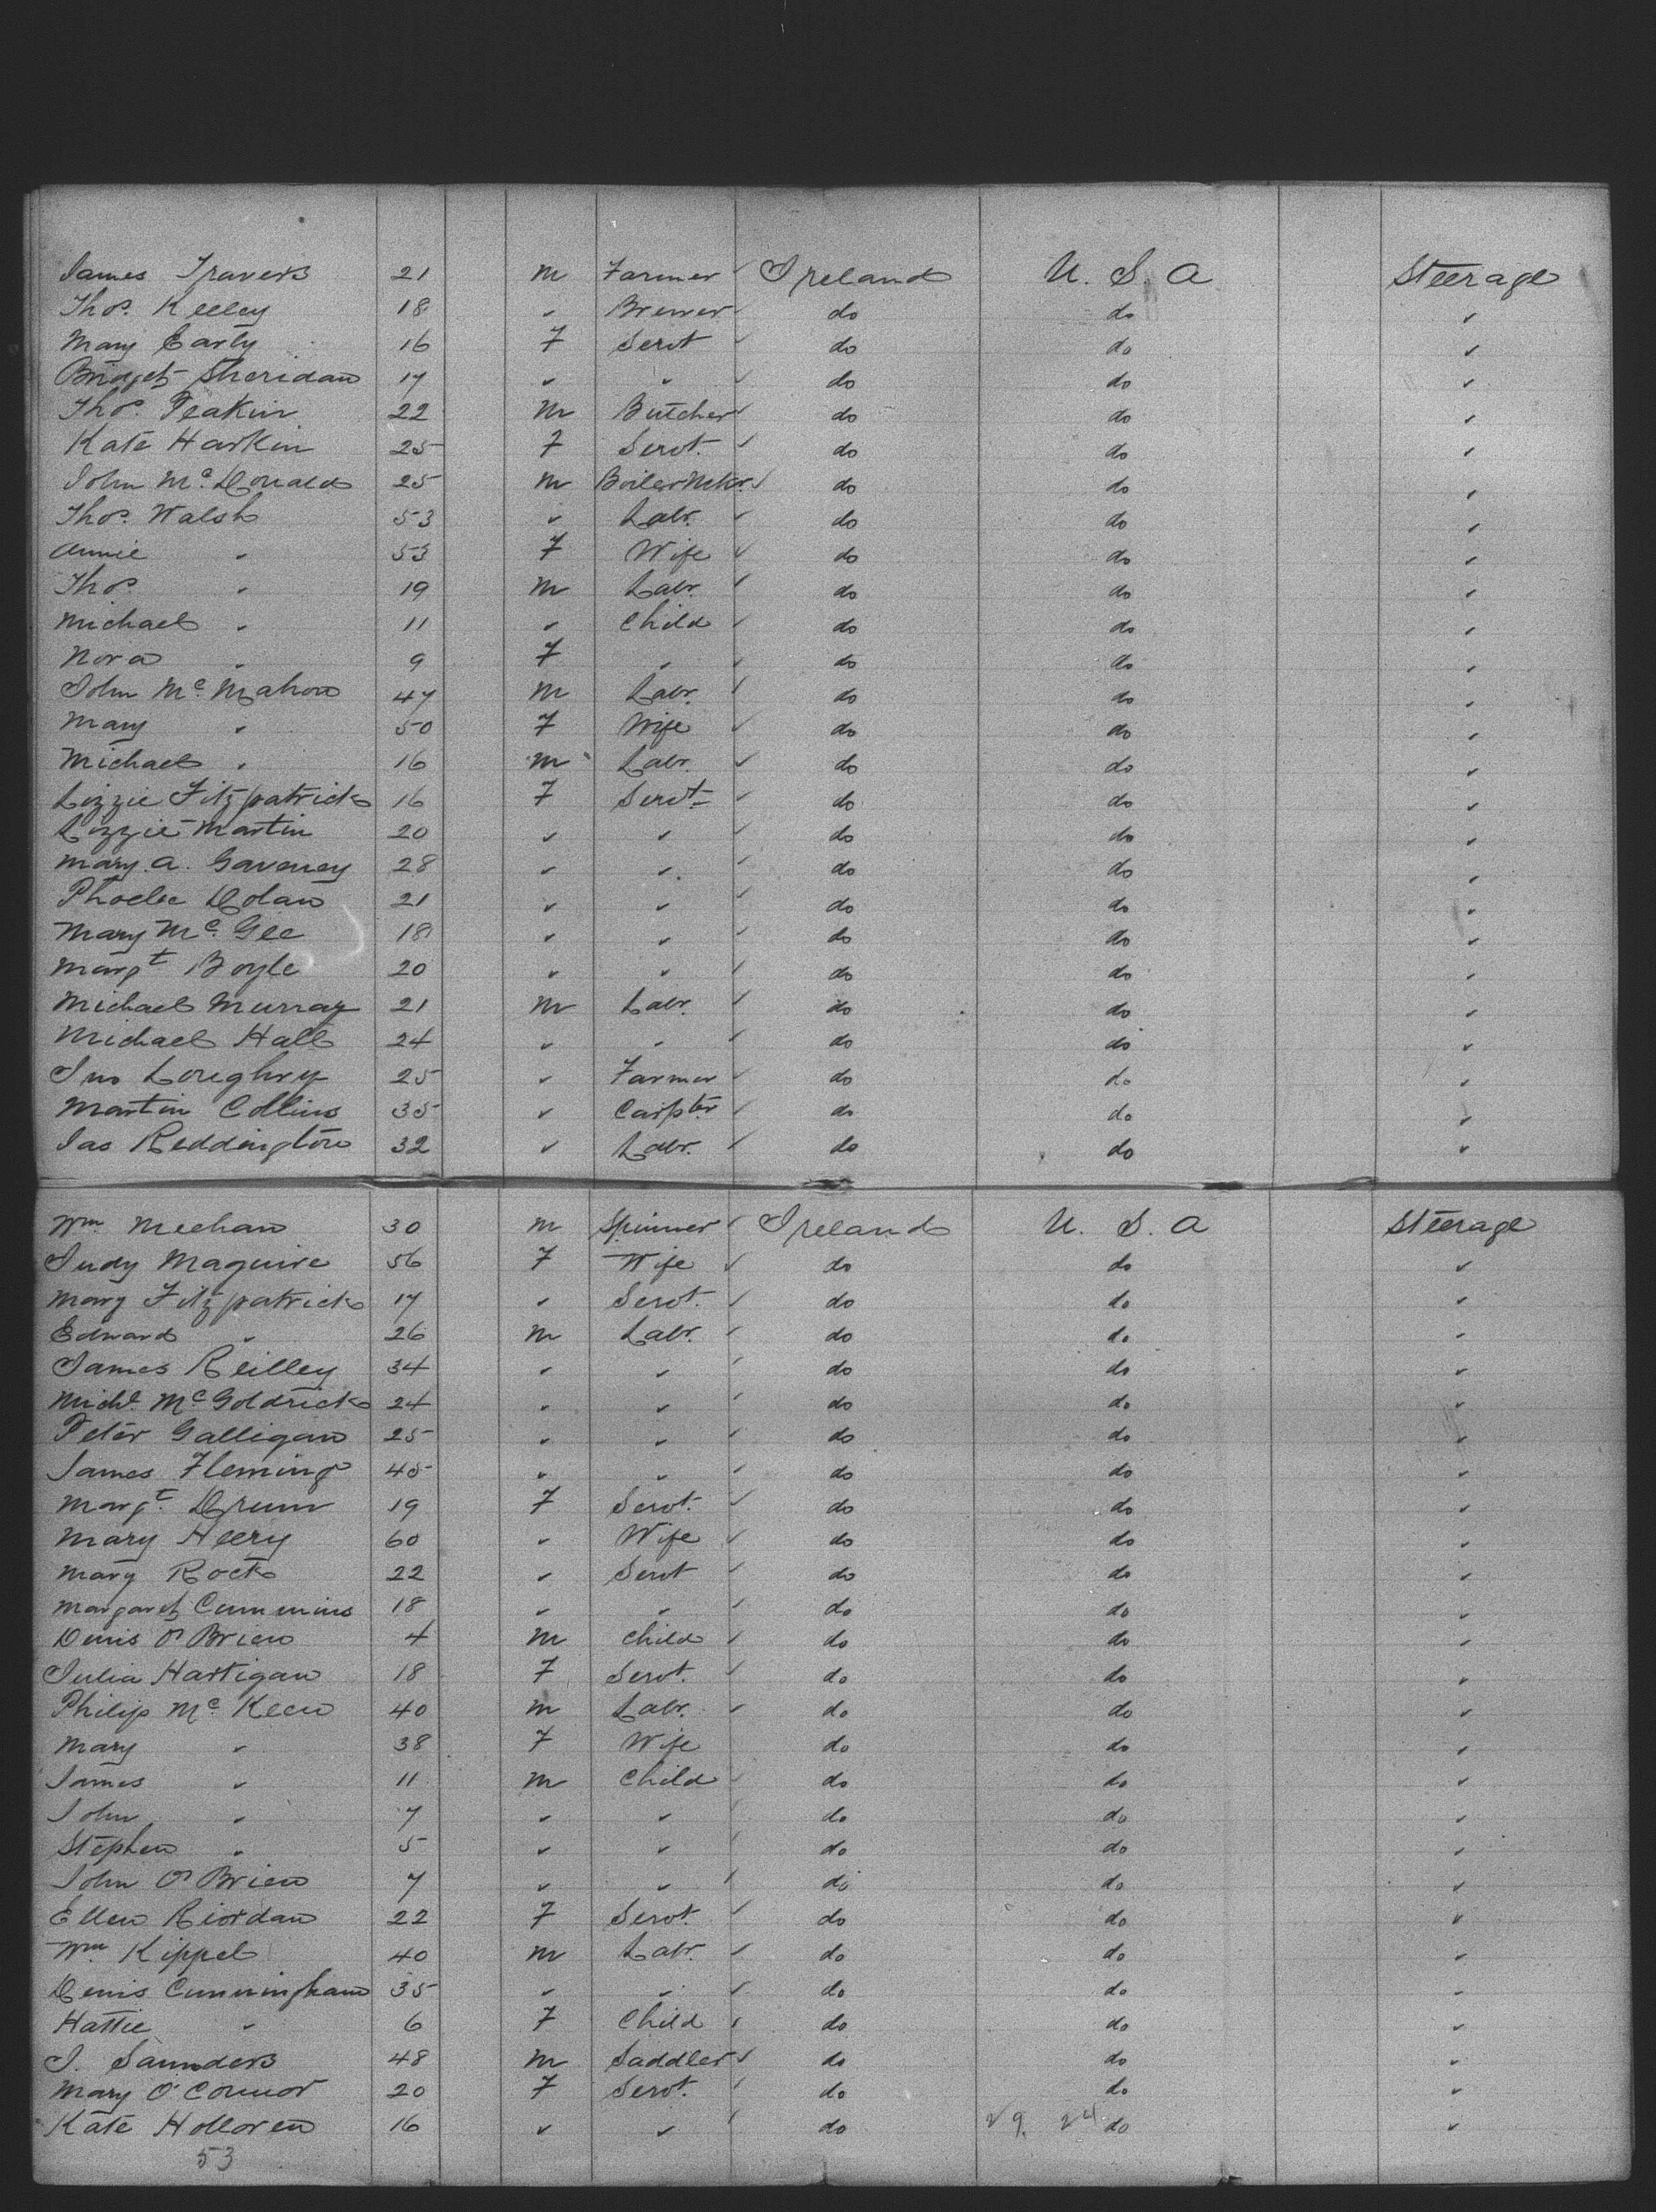 James Travers 21 m Farmer ✓ Ireland U. S. A Steerage
Thos. Kelley 18 " Brewer ✓ do do "
Mary Early 16 F Servt ✓ do do "
Bridget Sheridan 17 " " ✓ do do "
Thos. Peakin 22 m Butcher ✓ do do "
Kate Harkin 25 F Servt. ✓ do do "
John Mc. Donald 25 m Boiler Mkr. ✓ do do "
Thos. Walsh 53 " Labr. ✓ do do "
Annie " 53 F Wife ✓ do do "
Thos. " 19 m Labr. ✓ do do "
Michael " 11 " Child ✓ do do "
Nora " 9 F " ✓ do do "
John Mc. Mahon 47 m Labr. ✓ do do "
Mary " 50 F Wife ✓ do do "
Michael " 16 m Labr. ✓ do do "
Lizzie Fitzpatrick 16 F Servt. ✓ do do "
Lizzie Martin 20 " " ✓ do do "
Mary. A. Gaveney 28 " " ✓ do do "
Phoebe Dolan 21 " " ✓ do do "
Mary Mc. Gee 18 " " ✓ do do "
Margt Boyle 20 " " ✓ do do "
Michael Murray 21 m Labr. ✓ do do "
Michael Hall 24 " " ✓ do do "
Jno Loughry 25 " Farmer ✓ do do "
Martin Collins 35 " Carpter ✓ do do "
Jas Reddington 32 " Labr. ✓ do do "
Wm. Meehan 30 m Spinner ✓ Ireland U. S. A Steerage
Judy Maguire 56 F Wife ✓ do do "
Mary Fitzpatrick 17 " Servt. ✓ do do "
Edward " 26 m Labr. ✓ do do "
James Reilley 34 " " ✓ do do "
Michl. McGoldrick 24 " " ✓ do do "
Peter Galligan 25 " " ✓ do do "
James Fleming 45 " " ✓ do do "
Margt. Drum 19 F Servt. ✓ do do "
Mary Heery 60 " Wife ✓ do do "
Mary Rock 22 " Servt ✓ do do "
Margaret Cummins 18 " " ✓ do do "
Denis O'Brien 4 m Child ✓ do do "
Julia Hartigan 18 F Servt. ✓ do do "
Philip Mc. Keen 40 m Labr. ✓ do do "
Mary " 38 F Wife do do "
James " 11 m Child ✓ do do "
John " 7 " " ✓ do do "
Stephen " 5 " " ✓ do do "
John O'Brien 7 " " ✓ do do "
Ellen Riordan 22 F Servt. ✓ do do "
Wm. Kippel 40 m Labr. ✓ do do "
Denis Cunningham 35 " " ✓ do do "
Hattie " 6 F Child ✓ do do "
J. Saunders 48 m Saddler ✓ do do "
Mary O'Connor 20 F Servt. ✓ do do "
Kate Holloren 16 " " ✓ do 29. 24 do "
53